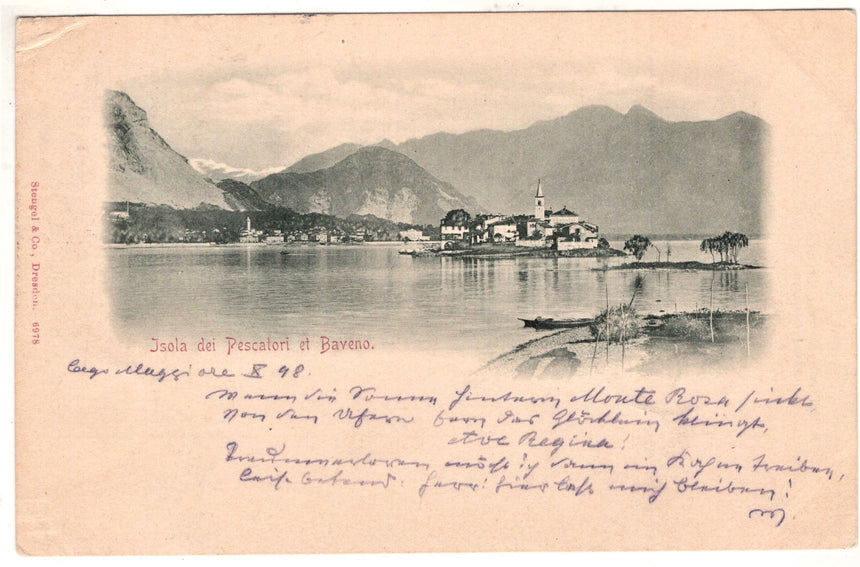 Stengel & Co., Dresden. 6978
Isola dei Pescatori et Baveno.
Lago Maggiore X 98.
Wenn die Sonne hinterm Monte Rosa sinkt,
Von den Ufern fern das Glöcklein klingt,
Ave Regina!
Traumverloren möcht' ich dann im Kahn treiben,
leise betend: Herr! hier laß mich bleiben!